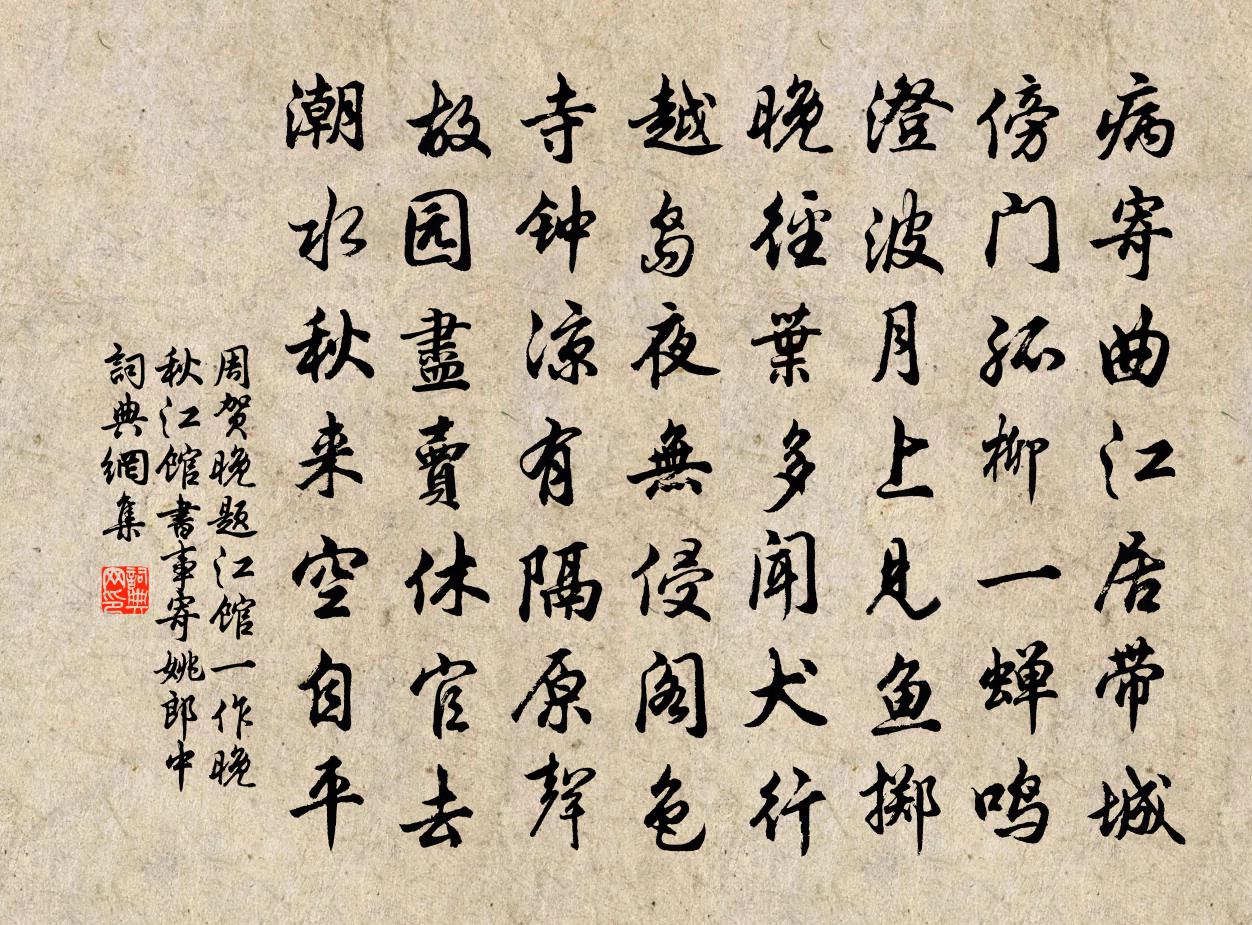 病寄曲江居带城
傍门孤柳一蝉鸣
澄波月上见鱼掷
晚径葉多闻犬行
越岛夜無侵阁色
寺钟凉有隔原聲
故园盡賣休官去
潮水秋来空自平
周贺晚题江馆一作晚
秋江馆書事寄姚郎中
詞典網集
詞典網印